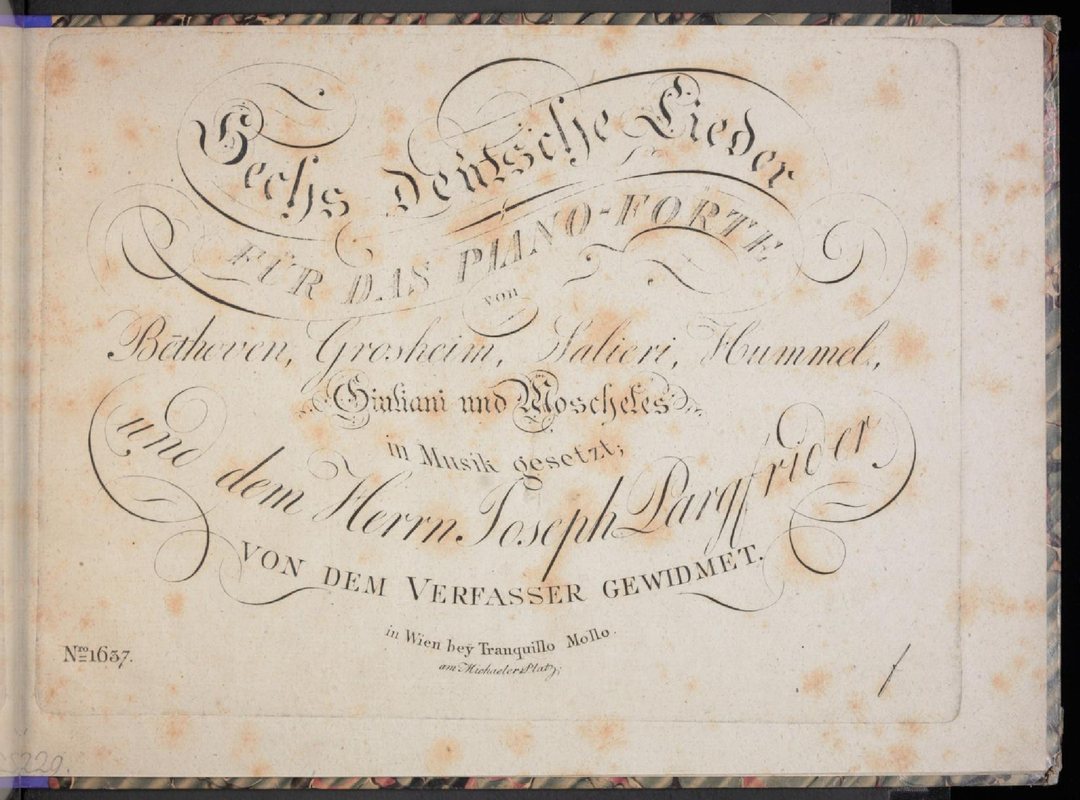 Sechs Deutsche Lieder
FÜR DAS PIANO-FORTE
von
Bēthoven, Grosheim, Salieri, Hummel,
Giuliani und Moscheles
in Musik gesetzt;
und dem Herrn Joseph Pargfrider
VON DEM VERFASSER GEWIDMET.
in Wien beÿ Tranquillo Mollo.
am Michaelerplatz;
Nro 1637.